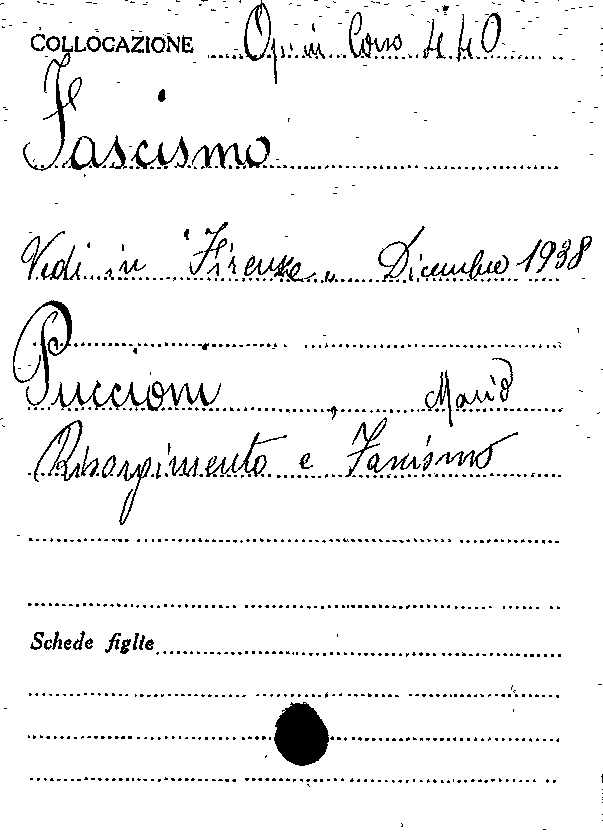 COLLOCAZIONE Op. in Corso 440
Fascismo
Vedi in "Firenze" Dicembre 1938
Puccioni, Mario
Risorgimento e Fascismo
Schede figlie